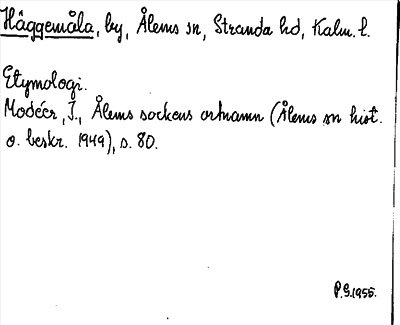 Häggemåla, by, Ålems sn, Stranda hd, Kalm. l.
Etymologi.
Modéer, I., Ålems sockens ortnamn (Ålems sn hist.
o. beskr. 1949), s. 80.
P.G.1955.